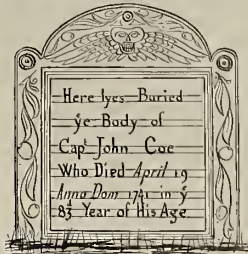 Here lyes Buried
yͤ Body of
Capᵗ John Coe
Who Died April 19
Anno Dom 1741 in yͤ
83 Year of His Age